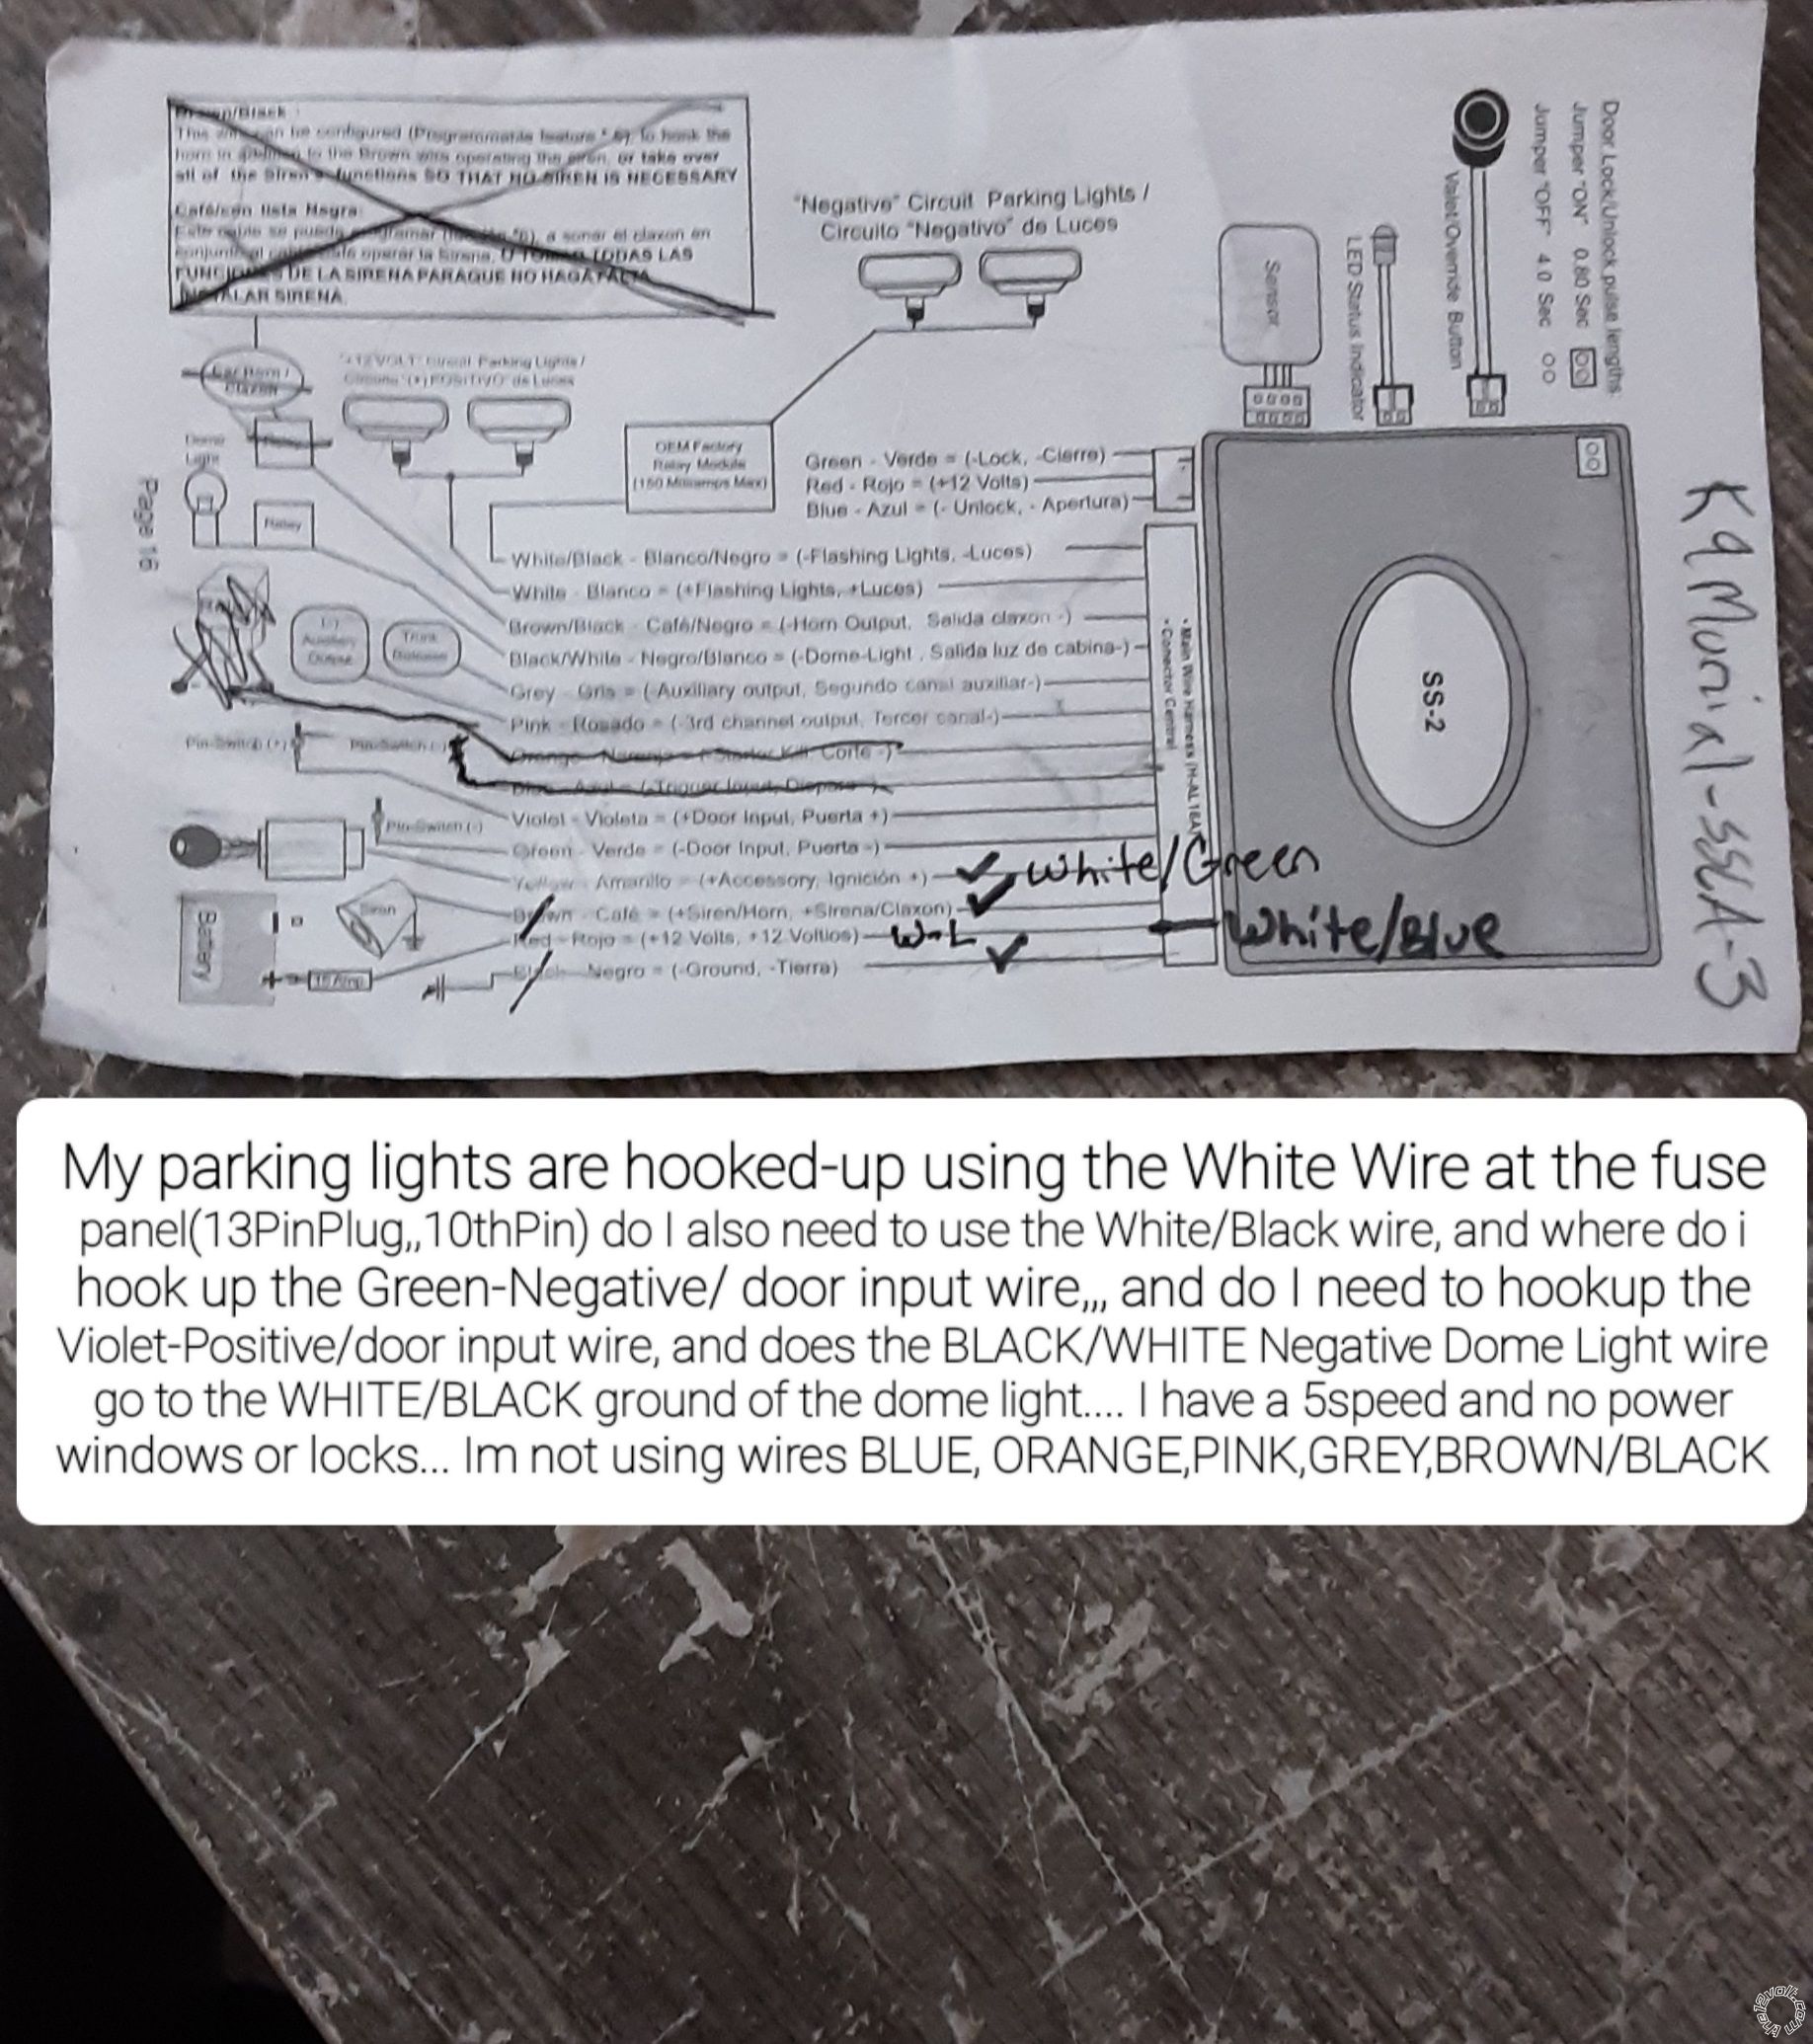 Brown/Black :
This wire can be configured (Programmable feature * 6), to honk the
horn in addition to the Brown wire operating the siren, or take over
all of the Siren's functions SO THAT NO SIREN IS NECESSARY
Café/con lista Negra:
Este cable se puede programar 6), a sonar el claxon en
conjunto al cable operar la Sirena, O TOMAR TODAS LAS
FUNCIONES DE LA SIRENA PARA QUE NO HAGA FALTA
INSTALAR SIRENA.
"Negative" Circuit Parking Lights /
Circuito "Negativo" de Luces
Sensor
LED Status Indicator
Valet/Override Button
Jumper "OFF" 4.0 Sec
Jumper "ON" 0.80 Sec
Door Lock/Unlock pulse lengths:
Car Horn /
Claxon
"+12 VOLT" Circuit Parking Lights /
Circuito "(+) POSITIVO" de Luces
OEM Factory
Relay Module
(150 Milliamps Max)
Green - Verde = (-Lock, -Cierre)
Red - Rojo = (+12 Volts)
Blue - Azul = (- Unlock, - Apertura)
Dome
Light
Relay
Relay
Page 16
White/Black - Blanco/Negro = (-Flashing Lights, -Luces)
White - Blanco = (+Flashing Lights, +Luces)
Brown/Black - Café/Negro = (-Horn Output, Salida claxon -)
Black/White - Negro/Blanco = (-Dome-Light , Salida luz de cabina-)
Grey - Gris = (-Auxiliary output, Segundo canal auxiliar-)
Pink - Rosado = (-3rd channel output, Tercer canal-)
Orange - Naranja = (-Starter Kill, Corte -)
Blue - Azul = (-Trigger Input, Disparo -)
Violet - Violeta = (+Door Input, Puerta +)
Green - Verde = (-Door Input, Puerta -)
Yellow - Amarillo = (+Accessory, Ignición +)
Brown - Café = (+Siren/Horn, +Sirena/Claxon)
Red - Rojo = (+12 Volts, +12 Voltios)
Black - Negro = (-Ground, -Tierra)
(-)
Auxiliary
Output
Trunk
Release
Pin-Switch (+)
Pin-Switch (-)
Pin-Switch (-)
Siren
Battery
15 Amp
• Main Wire Harness (H-AL18A)
• Conector Central
SS-2
White/Green
W-L
White/Blue
K9 Munial-SSLA-3
My parking lights are hooked-up using the White Wire at the fuse
panel(13PinPlug,,10thPin) do I also need to use the White/Black wire, and where do i
hook up the Green-Negative/ door input wire,,, and do I need to hookup the
Violet-Positive/door input wire, and does the BLACK/WHITE Negative Dome Light wire
go to the WHITE/BLACK ground of the dome light.... I have a 5speed and no power
windows or locks... Im not using wires BLUE, ORANGE,PINK,GREY,BROWN/BLACK
the12volt.com